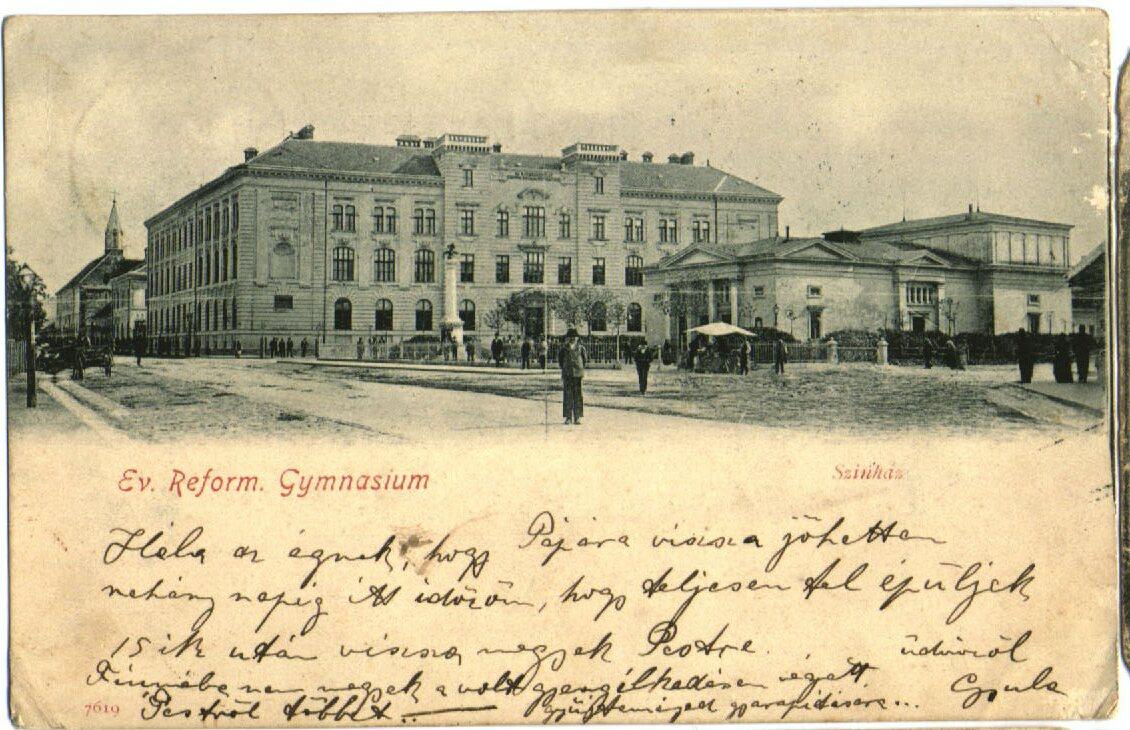 Ev. Reform. Gymnasium
Szinház
Hála az égnek, hogy Pápára vissza jöhettem
nehány napig itt időzöm, hogy teljesen fel épüljek
15 ik után vissza megyek Pestre.
üdvözöl
Fiuméba nem megyek a volt gyengélkedésem végett
Gyula
Pestről többet..
gyűjteményed gyarapítására...
7619